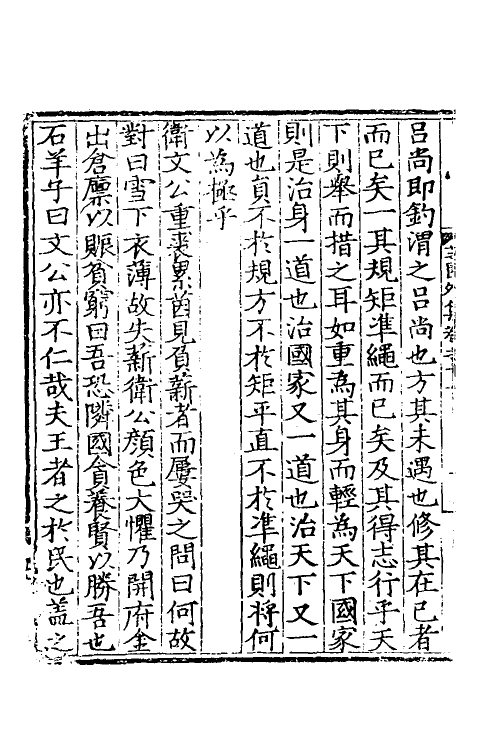 呂尚即釣渭之呂尚也方其未遇也修其在已者
而已矣一其規矩準繩而已矣及其得志行乎天
下則舉而措之耳如重為其身而輕為天下國家
則是治身一道也治國家又一道也治天下又一
道也員不於規方不於矩平直不於準繩則將何
以為極乎
衛文公重裘累茵見負薪者而屢哭之問曰何故
對曰雪下衣薄故失薪衛公顏色大懼乃開府金
出倉廩以賑貧窮曰吾恐隣國貪養賢以勝吾也
石羊子曰文公亦不仁哉夫王者之於民也盖之